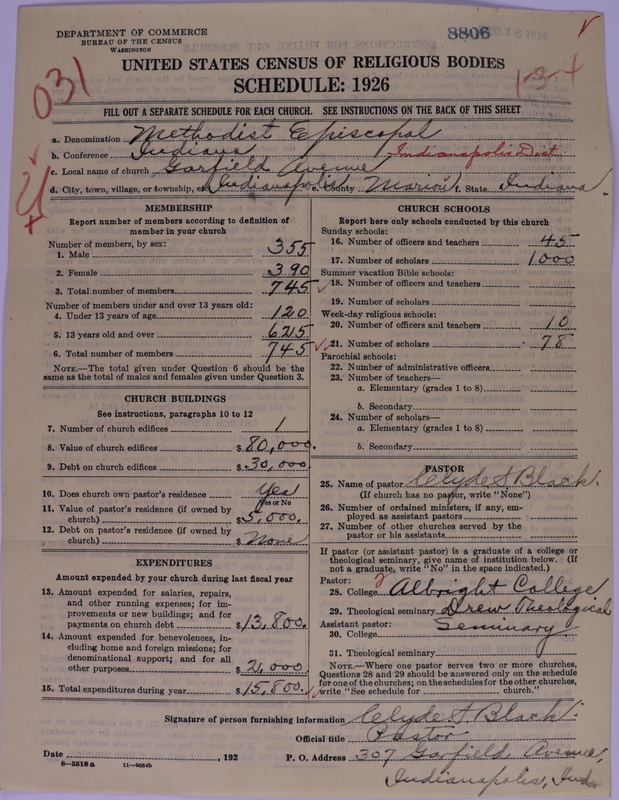 DEPARTMENT OF COMMERCE
BUREAU OF THE CENSUS
WASHINGTON
8806
16 1926
UNITED STATES CENSUS OF RELIGIOUS BODIES
SCHEDULE: 1926
031
1-3-+
FILL OUT A SEPARATE SCHEDULE FOR EACH CHURCH. SEE INSTRUCTIONS ON THE BACK OF THIS SHEET
a. Denomination Methodist Episcopal
b. Conference Indiana Indianapolis Dist
c. Local name of church Garfield Avenue
d. City, town, village, or township, etc. Indianapolis e. County Marion f. State Indiana.
MEMBERSHIP
Report number of members according to definition of
member in your church
Number of members, by sex:
1. Male 355
2. Female 390
3. Total number of members 745
Number of members under and over 13 years old:
4. Under 13 years of age 120
5. 13 years old and over 625
6. Total number of members 745
NOTE.—The total given under Question 6 should be
same as the total of males and females given under Question 3.
CHURCH BUILDINGS
See instructions, paragraphs 10 to 12
7. Number of church edifices 1
8. Value of church edifices $80,000.
9. Debt on church edifices $30,000
10. Does church own pastor's residence Yes
Yes or No
11. Value of pastor's residence (if owned by
church) $5,000.
12. Debt on pastor's residence (if owned by
church) $ None
EXPENDITURES
Amount expended by your church during last fiscal year
13. Amount expended for salaries, repairs,
and other running expenses; for im-
provements or new buildings; and for
payments on church debt $13,800.
14. Amount expended for benevolences, in-
cluding home and foreign missions; for
denominational support; and for all
other purposes $2,000.
15. Total expenditures during year $15,800.
CHURCH SCHOOLS
Report here only schools conducted by this church
Sunday schools:
16. Number of officers and teachers 45
17. Number of scholars 1000
Summer vacation Bible schools:
18. Number of officers and teachers
19. Number of scholars
Week-day religious schools:
20. Number of officers and teachers 10
21. Number of scholars 78
Parochial schools:
22. Number of administrative officers
23. Number of teachers—
a. Elementary (grades 1 to 8)
b. Secondary
24. Number of scholars—
a. Elementary (grades 1 to 8)
b. Secondary
PASTOR
25. Name of pastor Clyde S. Black.
(If church has no pastor, write "None")
26. Number of ordained ministers, if any, em-
ployed as assistant pastors
27. Number of other churches served by the
pastor or his assistants
If pastor (or assistant pastor) is a graduate of a college or
theological seminary, give name of institution below. (If
not a graduate, write "No" in the space indicated.)
Pastor:
28. College Albright College
29. Theological seminary Drew Theological
Assistant pastor: Seminary.
30. College
31. Theological seminary
NOTE.—Where one pastor serves two or more churches,
Questions 28 and 29 should be answered only on the schedule
for one of the churches; on the schedules for the other churches,
write "See schedule for church."
Signature of person furnishing information Clyde S. Black.
Official title Pastor
Date , 192 P. O. Address 307 Garfield Avenue,
8—5518 a 11—9054b Indianapolis, Ind.